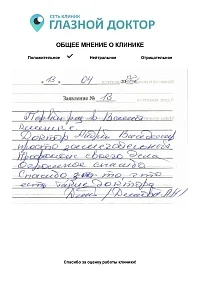 СЕТЬ КЛИНИК
ГЛАЗНОЙ ДОКТОР
ОБЩЕЕ МНЕНИЕ О КЛИНИКЕ
Положительное ✓ Нейтральное Отрицательное
13 04
Заявление № 13
Первый раз в Вашей
клинике.
Доктор
просто замечательный
Профессионал своего дела
Огромное спасибо
Спасибо за то, что
есть такие доктора
Спасибо за оценку работы клиники!